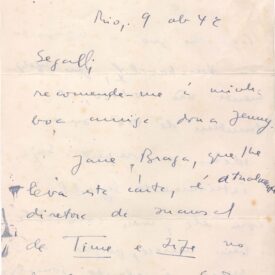 Rio, 9 ab 42
Segall,
recomende-me à minha
boa amiga dona Jenny
Jane Braga, que lhe
leva esta carta, é atualmente
diretora da sucursal
de Time e Life no